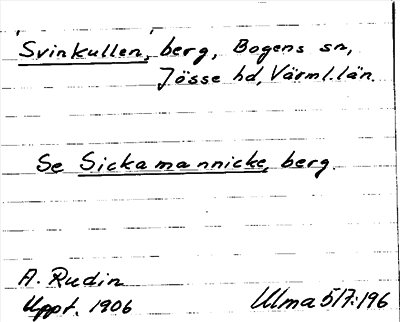 'Svinkullen,' berg, Bogens sn,
Jösse hd, Värml. län.
Se Sickamannicke, berg.
A. Rudin
Uppt. 1906
Ulma 517:196